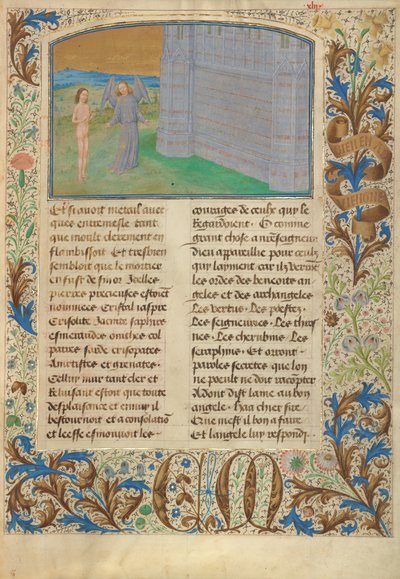 xliij
Et si avoit metail avec
ques entremesle tant
que moult clerement en
flamboissoit Et tresbien
sembloit que le mortier
en fust de fin or Icelles
pierres precieuses estoient
nommees Cristal iaspre
Crisolite Jacinte saphire
esmeraudes oniche col
patire sarde crisopatre
Ametistes et grenates.
Celluy mur tant cler et
reluisant estoit que toute
desplaisance et ennuy il
destournoit et a consolacion
et leesse esmouvoit les
courages de ceulx quy le
Regardoient. Et comme
grant chose a nr̃eseigneur
dieu appareillie pour ceulx
quy layment car ilz verront
les ordes des benoites an
geles et des archangeles
Les vertus. Les poestez
Les seigneuries. Les thros
nes. Les cherubins. Les
seraphins. Et orront
paroles secretes que lon
ne poeult ne doit racopter
Adont dist lame au bon
angele. haa chier sire
Que mest il bon a faire
Et langele luy respondi.
VIEN
CM